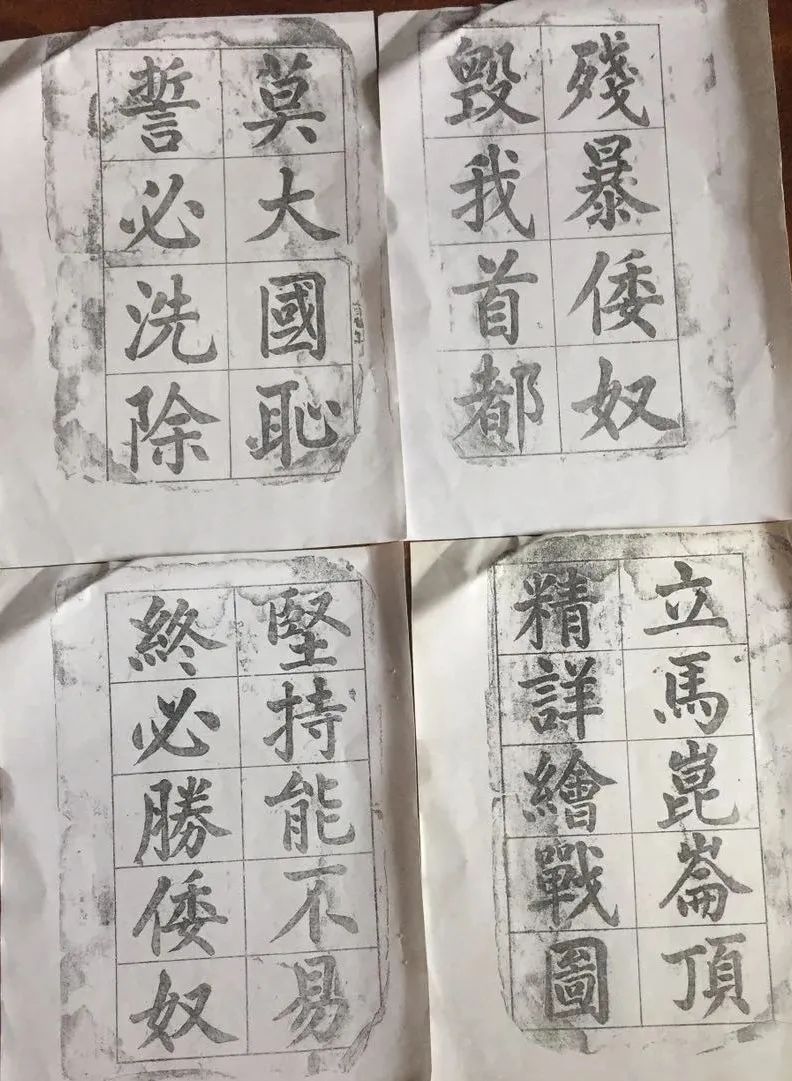 殘暴倭奴
毀我首都
莫大國恥
誓必洗除
立馬崑崙頂
精詳繪戰圖
堅持能不易
終必勝倭奴